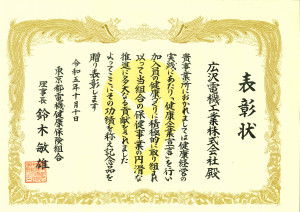 表彰状
広沢電機工業株式会社殿
貴事業所におかれましては健康経営の
実践にあたり、健康企業宣言を行い
加入員の健康づくりに積極的に取り組まれ
以って当組合の保健事業の円滑な
推進に多大なる貢献をされました
よってここにその功績を称え記念品を
贈り表彰します
令和五年十月十日
東京都電機健康保険組合
理事長 鈴木敏雄